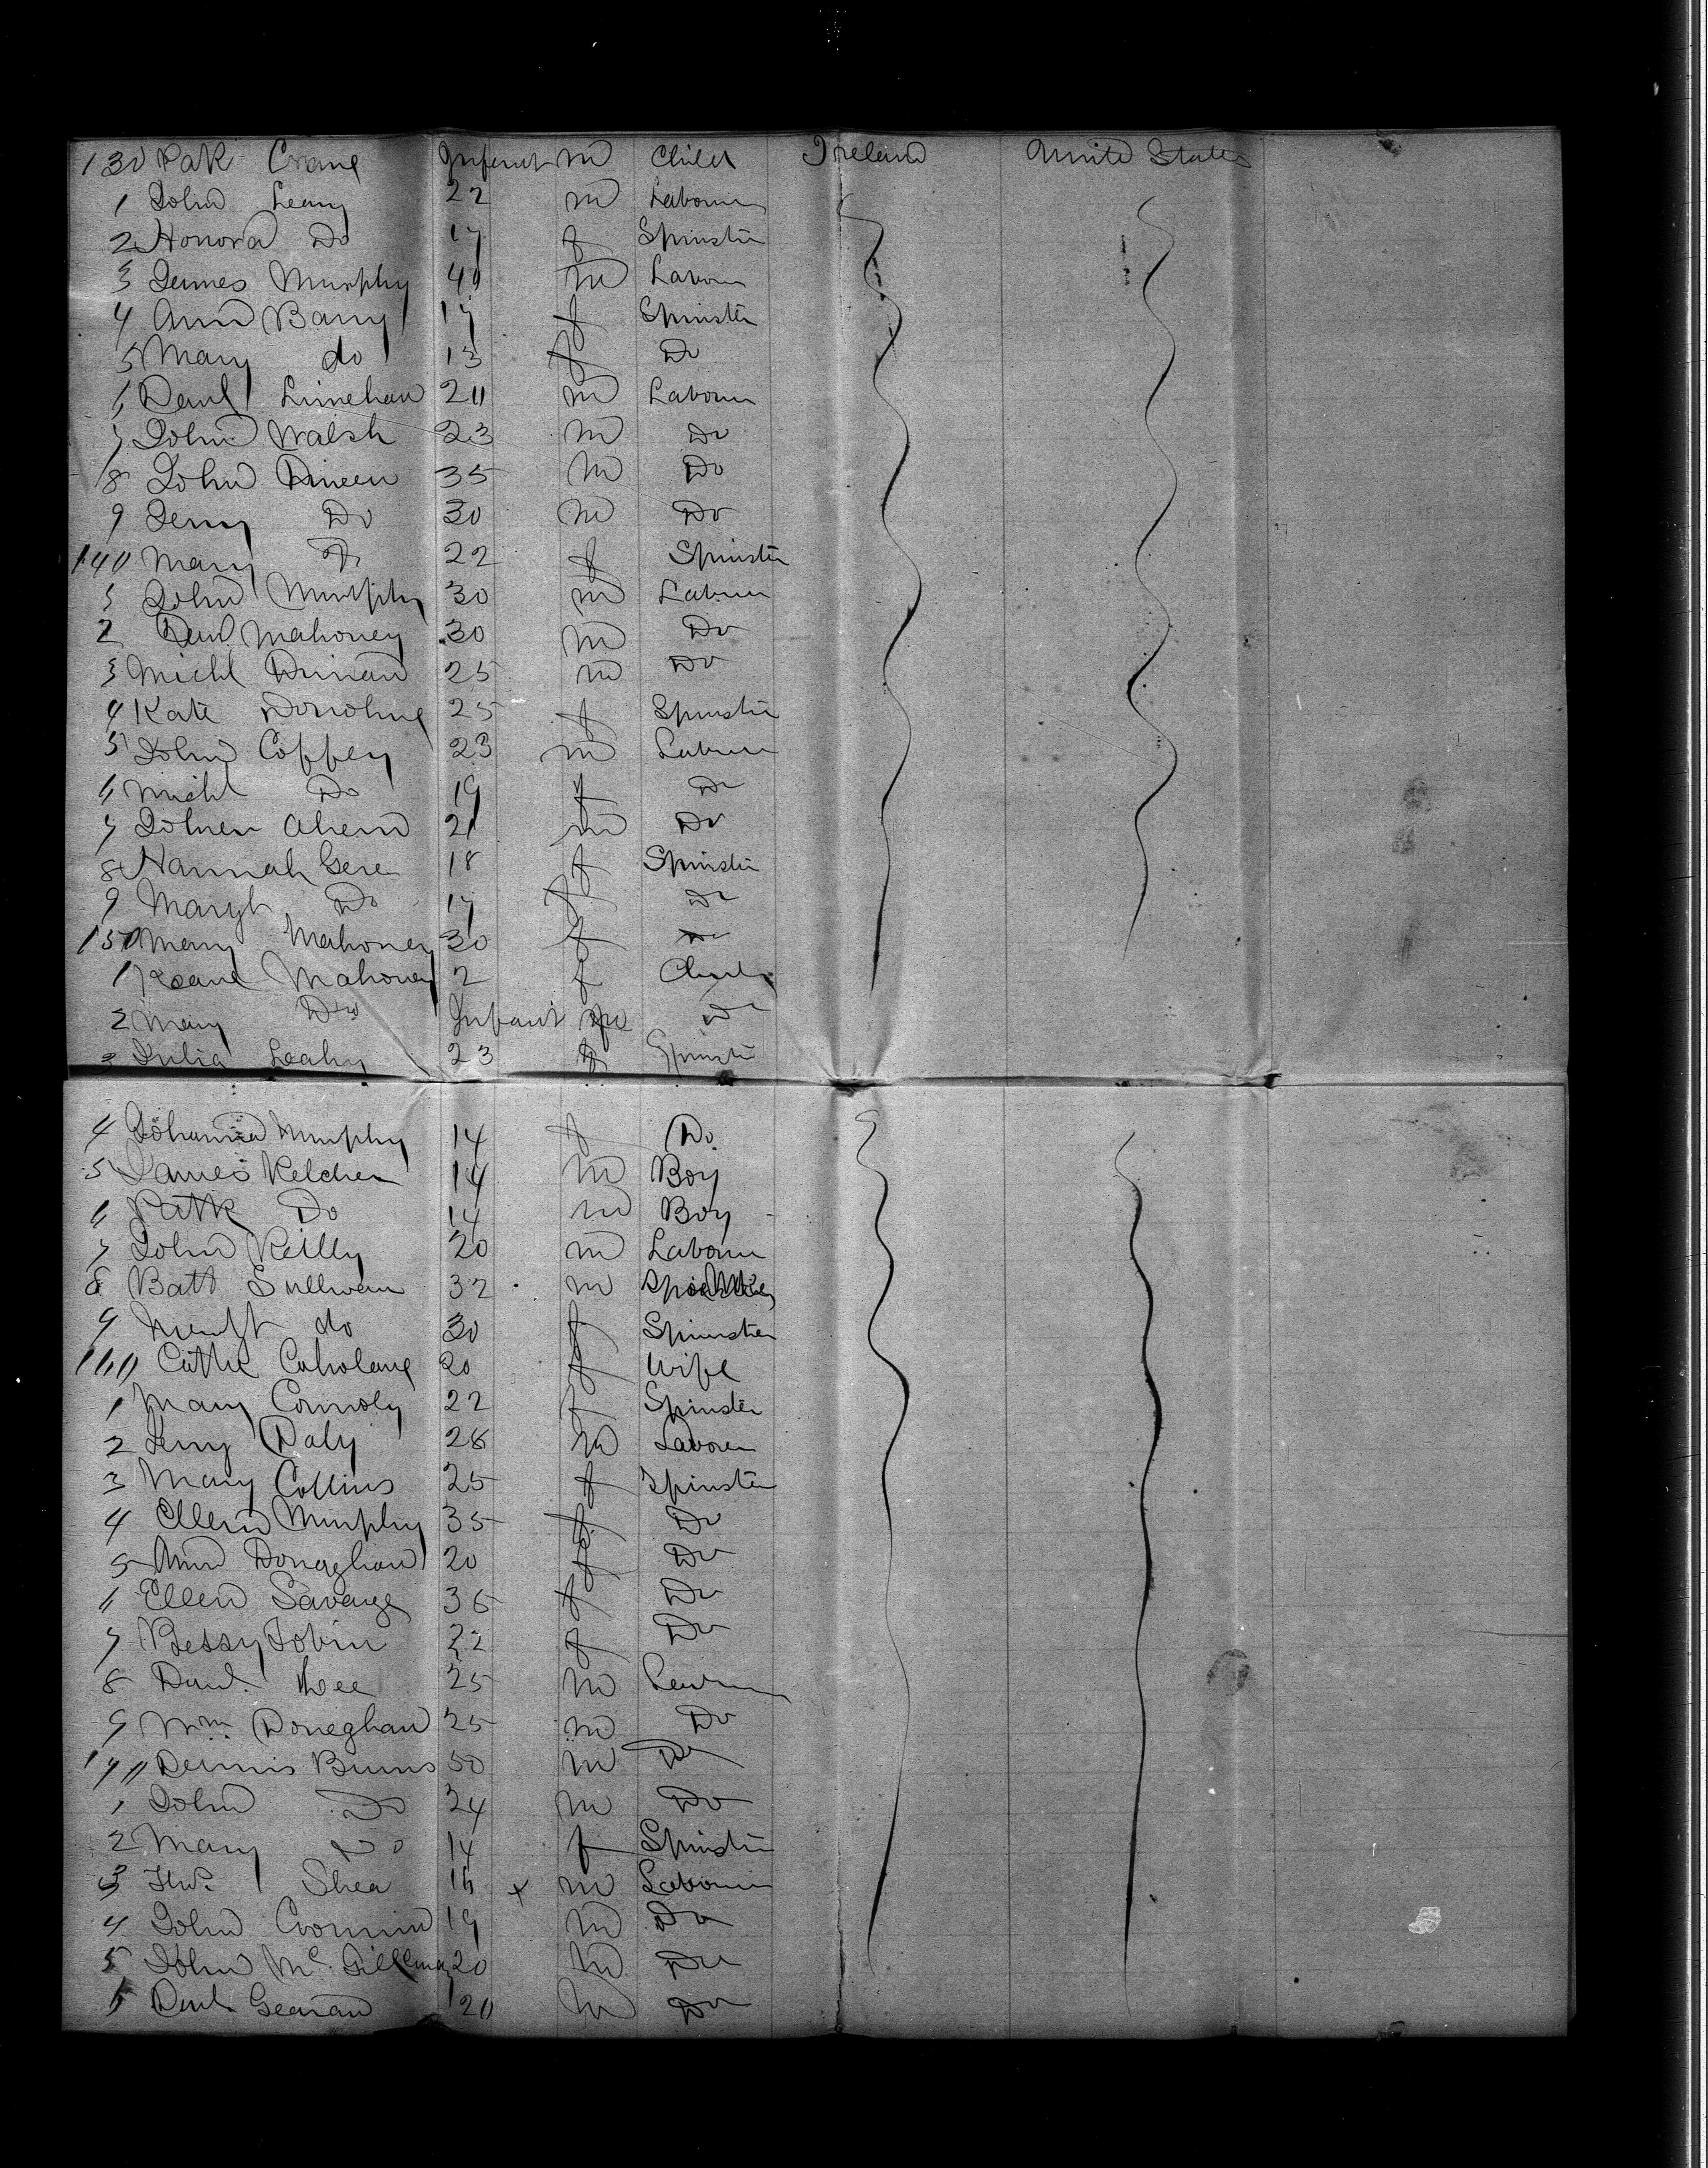 130 Pak Crane Infant m Child Ireland Unite States
1 John Leary 22 m Labourer
2 Honora Do 17 f Spinster
3 James Murphy 40 m Labour
4 Ann Barry 17 f Spinster
5 Mary do 13 f Do
6 Danl Linehan 20 m Labourer
7 John Walsh 23 m Do
8 John Dineen 35 m Do
9 Jerry Do 30 m Do
140 Mary Do 22 f Spinster
John Murphy 30 m Labourer
2 Danl Mahoney 30 m Do
3 Michl Dinan 25 m Do
4 Kate Donohue 25 f Spinster
5 John Coffey 23 m Labourer
6 Michl Do 19 f Do
7 Ahern 21 m Do
8 Hannah Gere 18 f Spinster
9 Margt Do 17 f Do
150 Mary Mahoney 30 f Do
1 Mahoney 2 f Child
2 Mary Do Infant Do
3 Julia Leahy 23 f Spinster
4 Johanna Murphy 14 f Do
5 James Kelcher 14 m Boy
6 Patk Do 14 m Boy
7 John Reilly 20 m Labourer
8 Batt Sullivan 32 m
9 do 30 f Spinster
160 Cathe Coholane 20 f Wife
1 Mary Connoly 22 f Spinster
2 Jerry Daly 28 m Laborer
3 Mary Collins 25 f Spinster
4 Ellen Murphy 35 f Do
5 Ann Donaghan 20 f Do
6 Ellen Savage 36 f Do
7 Bessy Tobin 22 f Do
8 Danl. 25 m
9 Wm Doneghan 25 m Do
170 Dennis Burns 50 m Do
1 John Do 24 m Do
2 Mary Do 14 f Spinster
3 Shea 16 x m Labourer
4 John 19 m Do
5 John Mc. 20 m Do
6 Danl Gearan 20 m Do